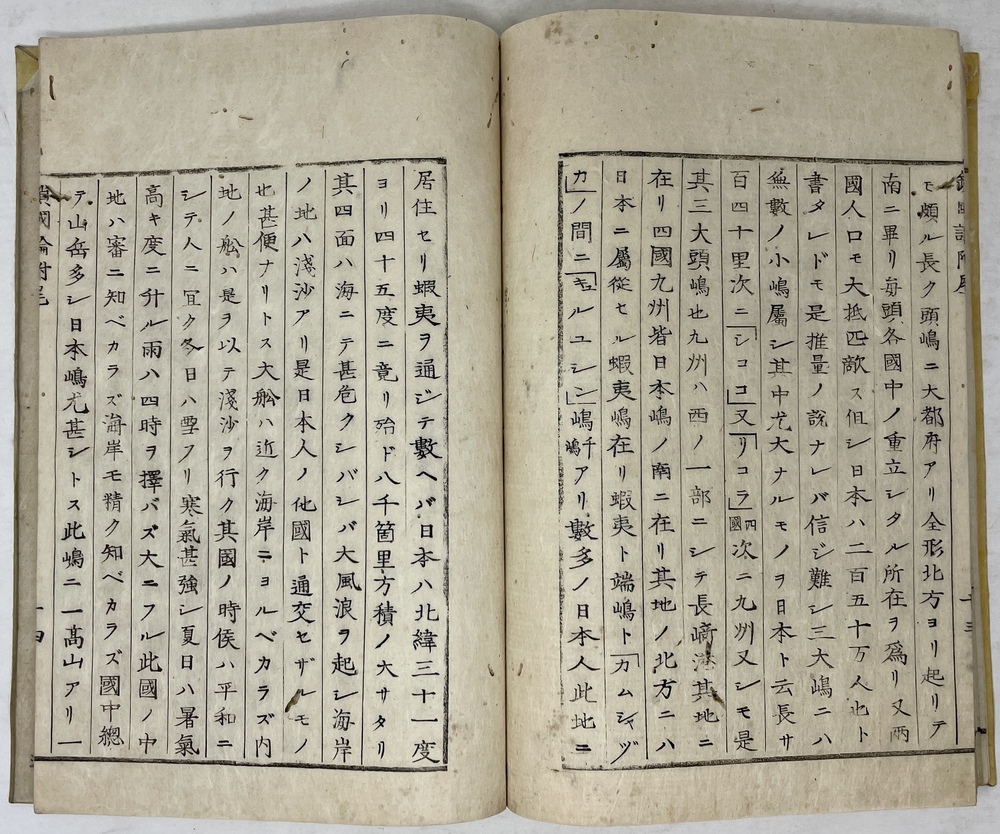 モ頗ル長ク頭嶋ニ大都府アリ全形北方ヨリ起リテ
南ニ畢リ毎頭各國中ノ重立シタル所在ヲ爲リ又兩
國人口モ大抵匹敵ス但シ日本ハ二百五十万人也ト
書タレドモ是推量ノ説ナレバ信ジ難シ三大嶋ニハ
無數ノ小嶋屬シ其中尤大ナルモノヲ日本ト云長サ
百四十里次ニ「シココ」又「リコラ」四國次ニ九州又シモ是
其三大頭嶋也九州ハ西ノ一部ニシテ長﨑港其地ニ
在リ四國九州皆日本嶋ノ南ニ在リ其地ノ北方ニハ
日本ニ屬從セル蝦夷嶋在リ蝦夷ト端嶋ト「カムシャヅ
カ」ノ間ニ「キュルユシン」嶋千嶋アリ數多ノ日本人此地ニ
居住セリ蝦夷ヲ通ジテ數ヘバ日本ハ北緯三十一度
ヨリ四十五度ニ竟リ殆ド八千箇里方積ノ大サタリ
其四面ハ海ニテ甚危クシバシバ大風浪ヲ起シ海岸
ノ地ハ淺沙アリ是日本人ノ他國ト通交セザルモノ
也甚便ナリトス大舩ハ近ク海岸ニヨルベカラズ内
地ノ舩ハ是ヲ以テ淺沙ヲ行ク其國ノ時侯ハ平和ニ
シテ人ニ宜ク冬日ハ雪フリ寒氣甚強シ夏日ハ暑氣
高キ度ニ升ル雨ハ四時ヲ擇バズ大ニフル此國ノ中
地ハ審ニ知ベカラズ海岸モ精ク知ベカラズ國中總
テ山岳多シ日本嶋尤甚シトス此嶋ニ一髙山アリ一
鎖國論附尾
十四